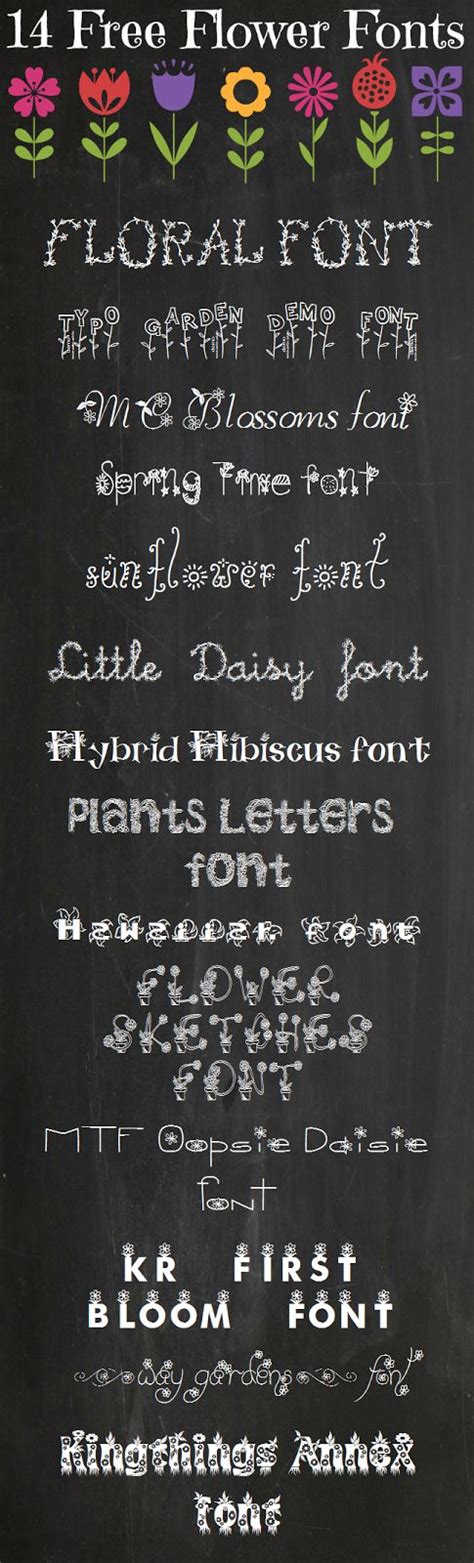 14 Free Flower Fonts
FLORAL FONT
TYPO GARDEN DEMO FONT
MC Blossoms font
Spring Time font
sunflower font
Little Daisy font
Hybrid Hibiscus font
Plants Letters
font
Hawaiian font
FLOWER
SKETCHES
FONT
MTF Oopsie Daisie
font
KR FIRST
BLOOM FONT
way gardens font
Kingthings Annex
font